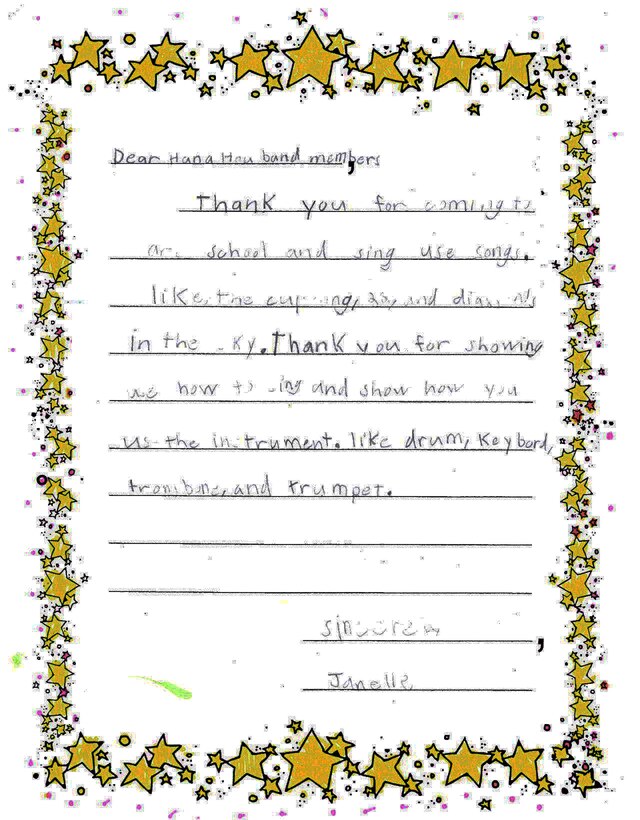 Dear Hana Hou band members,
Thank you for coming to
school and sing use songs.
like, the and
in the Thank you for showing
how to and show how you
us the intrument. like drum, Keybord,
trombone, and trumpet.
Sincerely,
Janelle